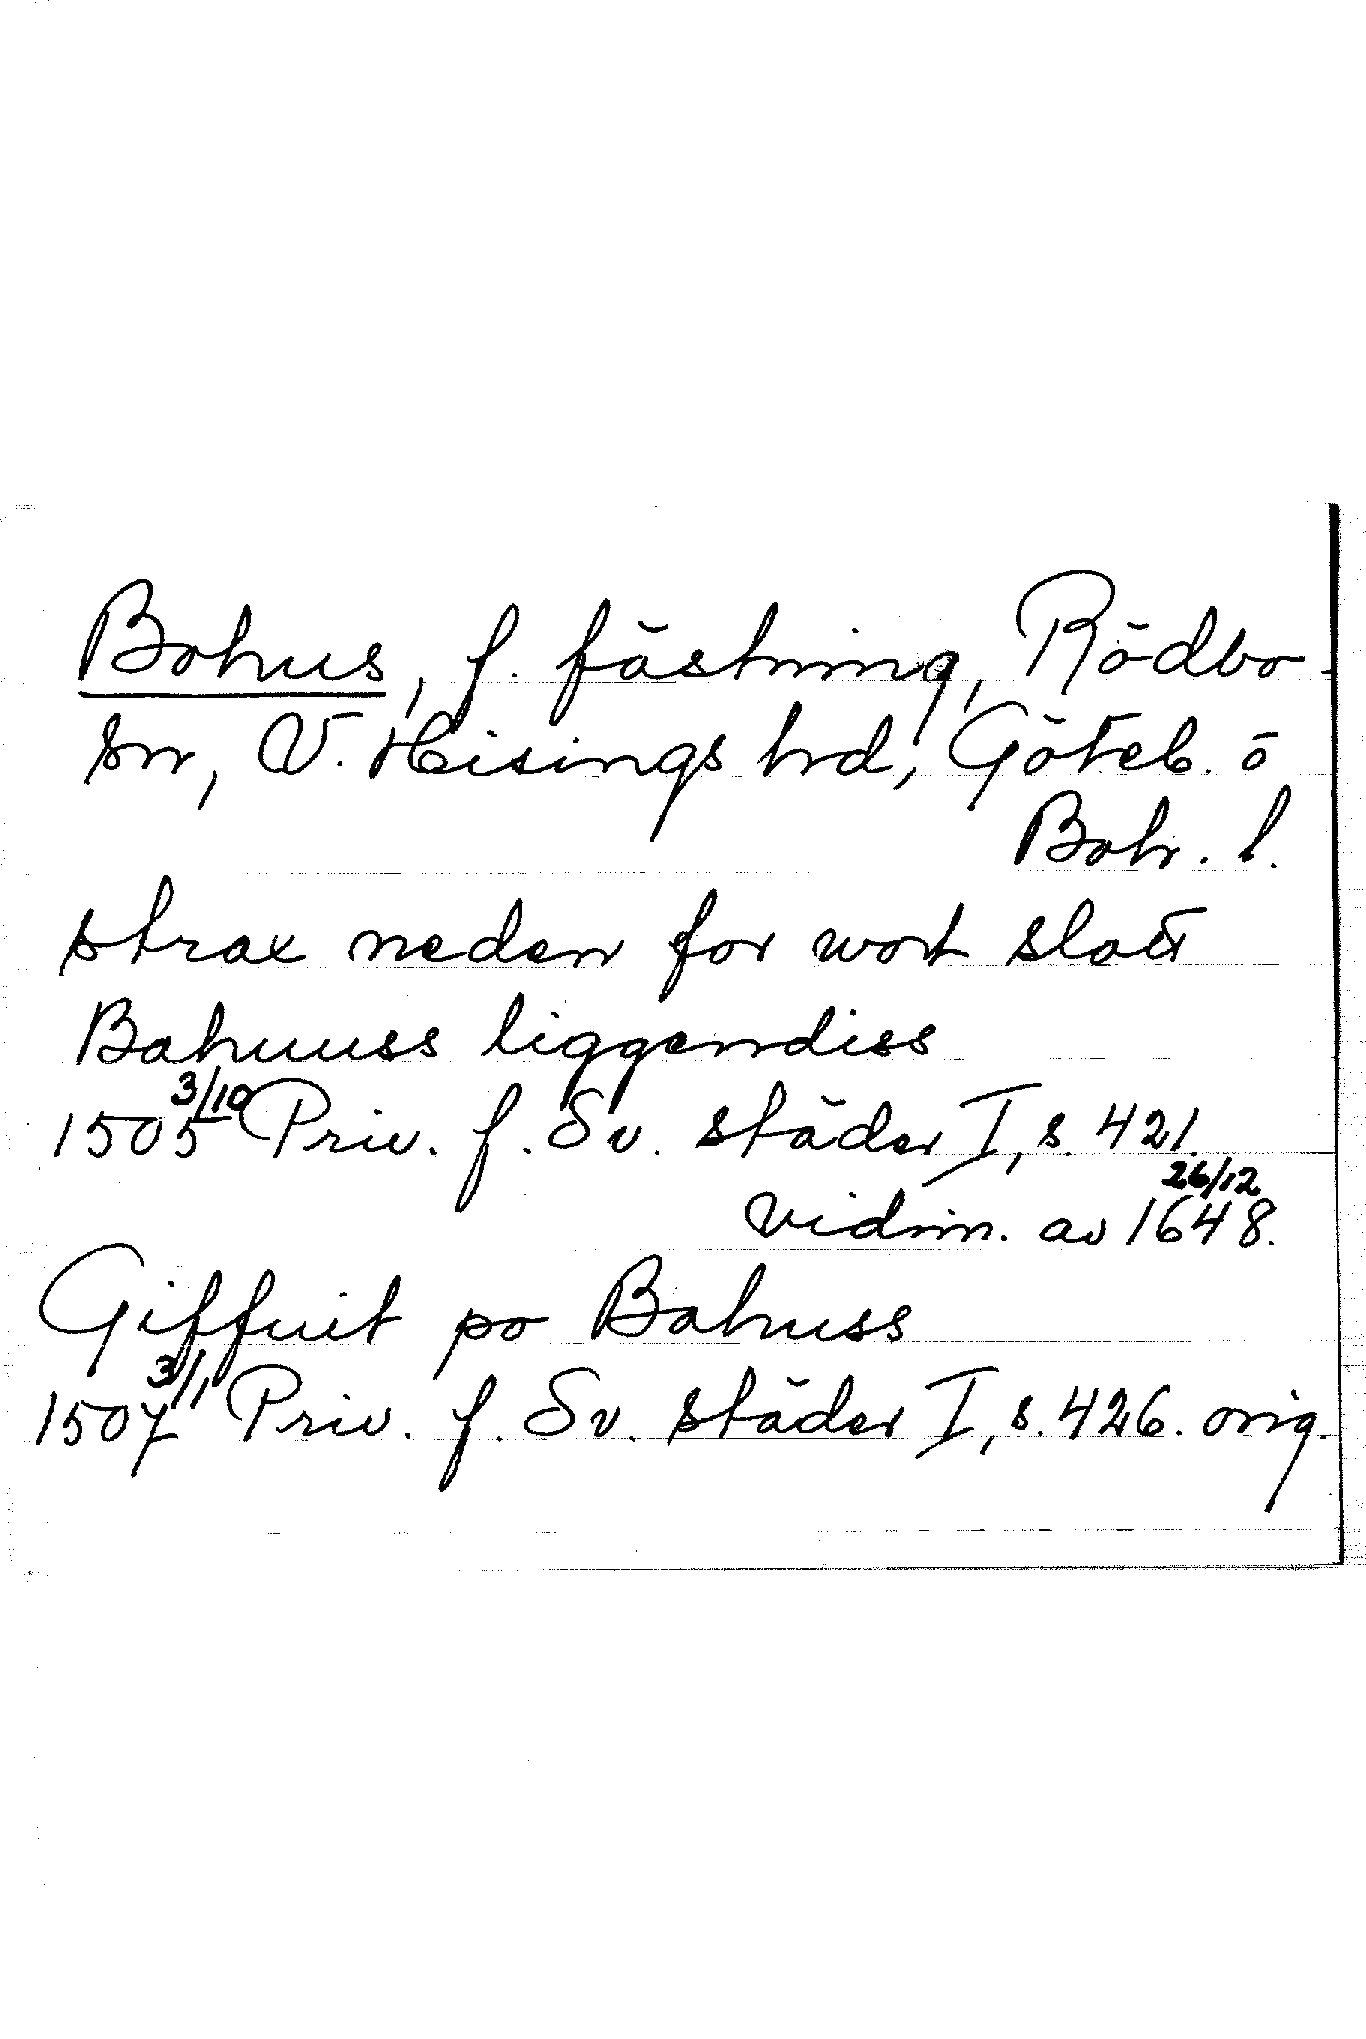 Bohus, f. fästning, Rödbo
sn, V. Hisings hd, Göteb. o
Boh. l.
strax neden for wort slott
Bahuuss liggendiss
1505 3/10 Priv. f. Sv. städer I, s. 421.
vidim. av 1648 26/12.
Giffuit po Bahuss
1507 3/1 Priv. f. Sv. städer I, s. 426. orig.